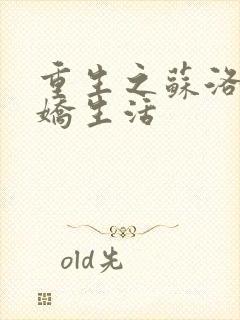 重生之蘇洛
嬌生活
old先